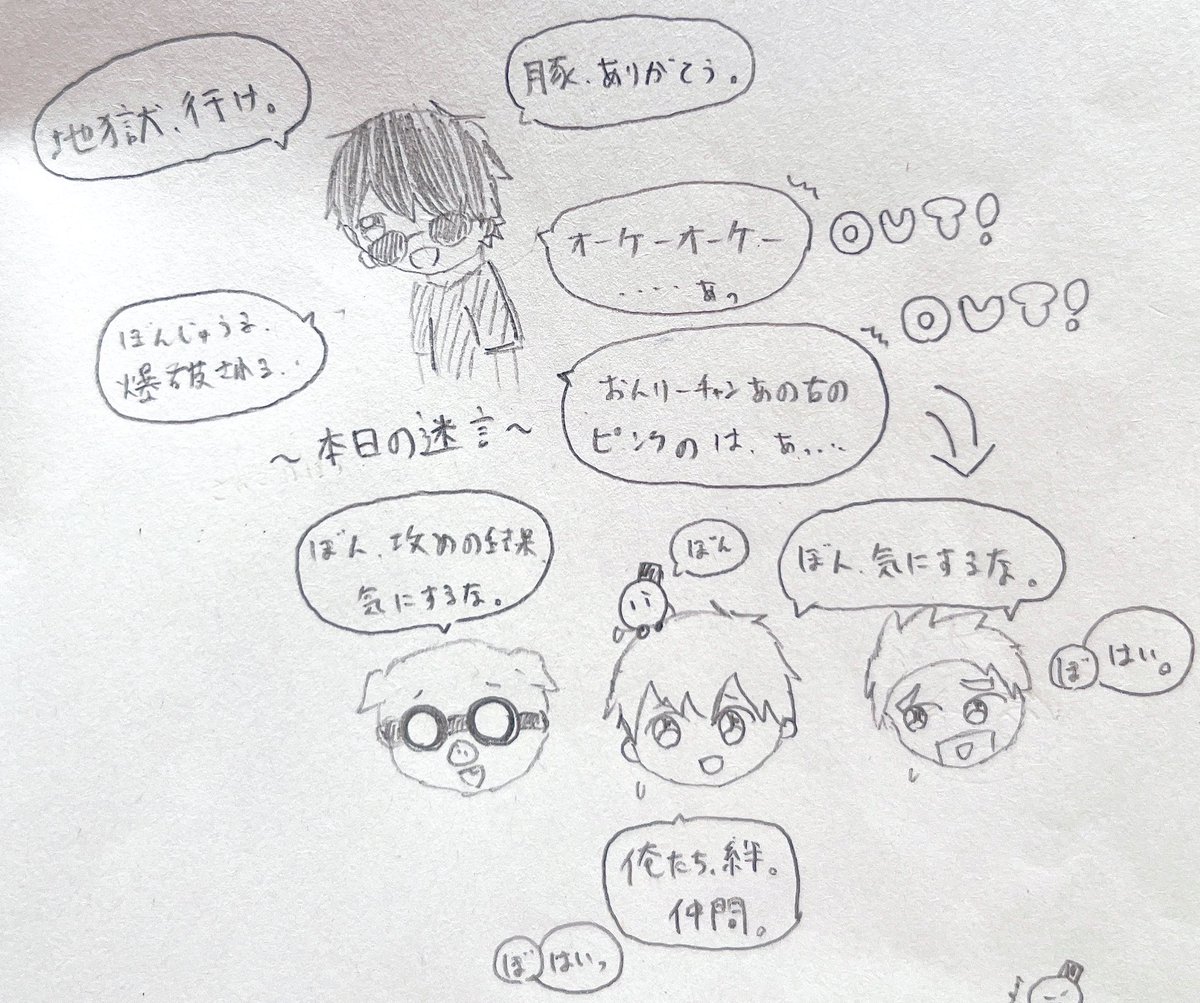 地獄、行け。
豚、ありがとう。
オーケーオーケー
・・・・あっ
OUT!
OUT!
ぼんじゅうる、
爆破される・・
おんりーチャンあの右の
ピンクのは、あっ・・・
〜本日の迷言〜
ぼん、攻めの結果
気にするな。
ぼん
ぼん、気にするな。
ぼ
はい。
俺たち、絆。
仲間。
ぼ
はいっ